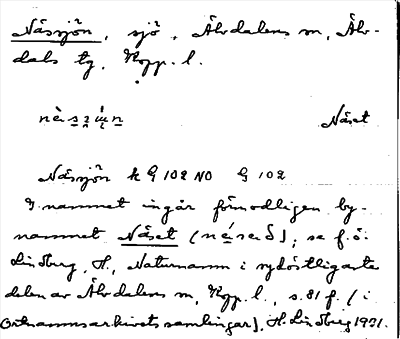 Näsjön, sjö, Älvdalens sn, Älv-
dals tg, Kopp. l.
Näset
Näsjön k G 102 NO G 102
I namnet ingår förmodligen by-
namnet Näset; se f.ö.
Lindberg, H., Naturnamn i sydöstligaste
delen av Älvdalens sn, Kopp. l., s. 81 f. (i
Ortnamnsarkivets samlingar), H. Lindberg 1931.